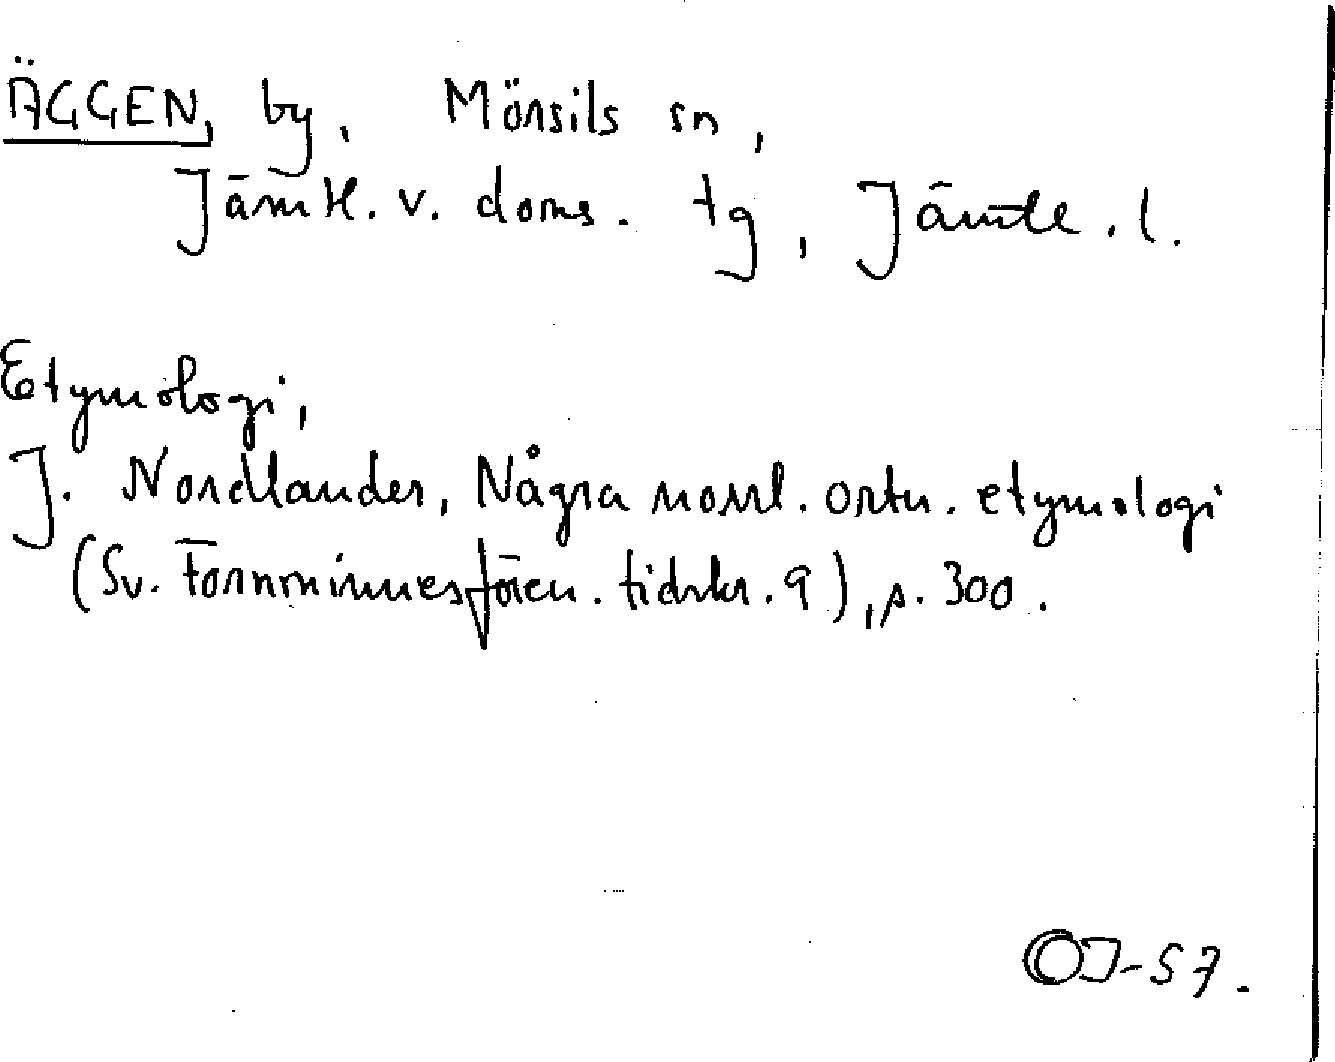 ÄGGEN, by, Mörsils sn,
Jämtl. v. doms. tg, Jämtl. l.
Etymologi,
J. Nordlander, Några norrl. ortn. etymologi
(Sv. Fornminnesfören. tidskr. 9), p. 300.
OJ-57.